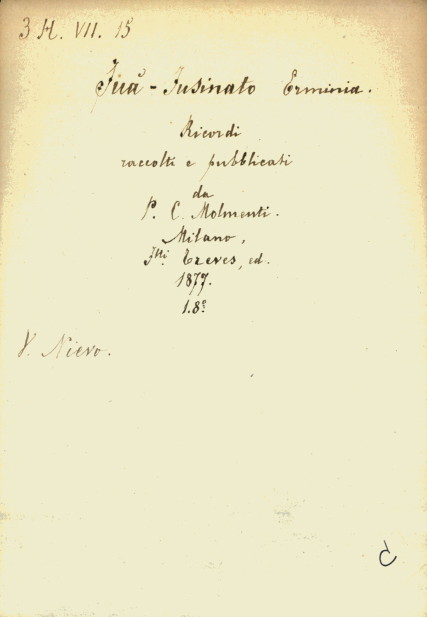 3 H. VII. 15
Fuà-Fusinato Erminia.
Ricordi
raccolti e pubblicati
da
P. C. Molmenti.
Milano,
F.lli Treves, ed.
1877.
1. 8º
V. Nievo.